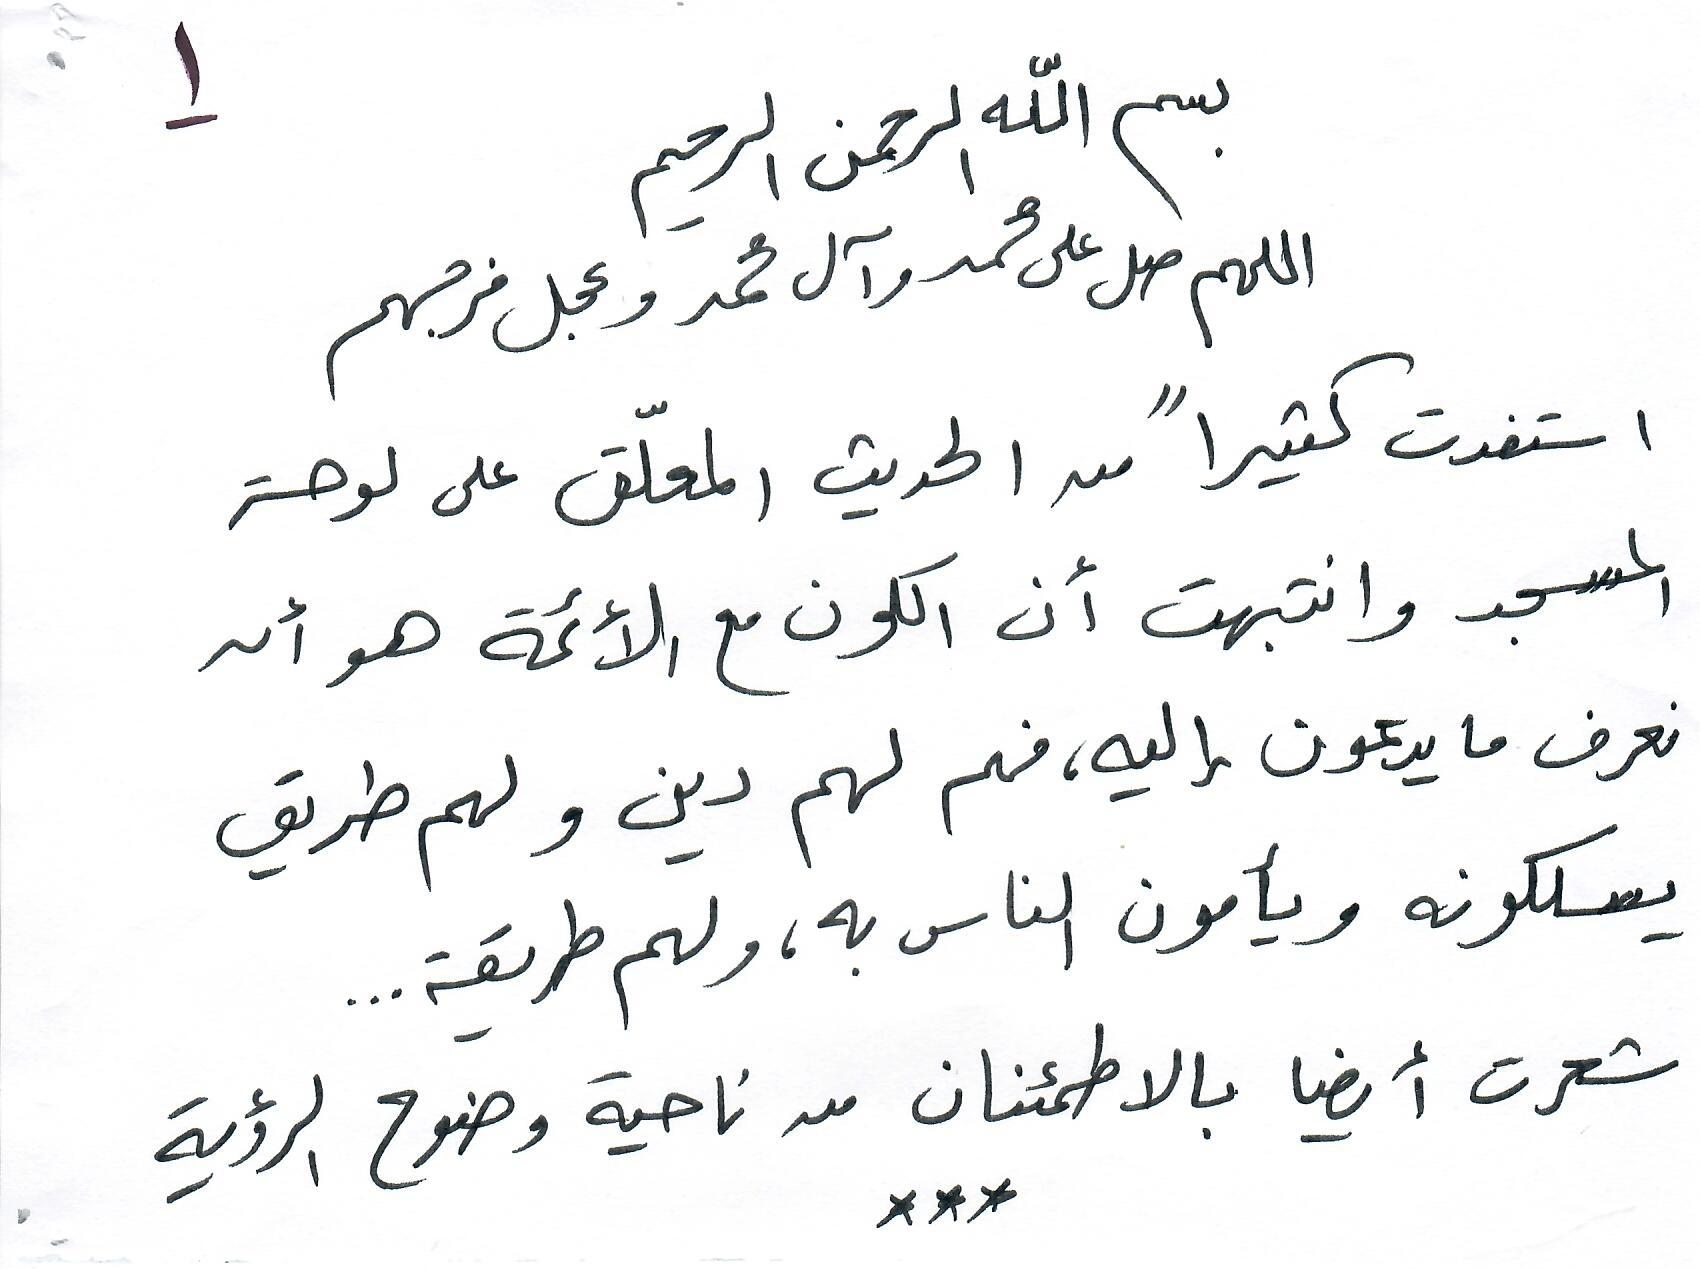 ١
بسم اللّه الرحمن الرحيم
اللهم صل على محمد وآل محمد وعجل فرجهم
استفدت كثيراً من الحديث المعلّق على لوحة
المسجد وانتبهت أن الكون مع الأئمة هو أن
نعرف ما يدعون إليه، فهم لهم دين ولهم طريق
يسلكونه ويأمون الناس به، ولهم طريقة...
شعرت أيضا بالاطمئنان من ناحية وضوح الرؤية
***